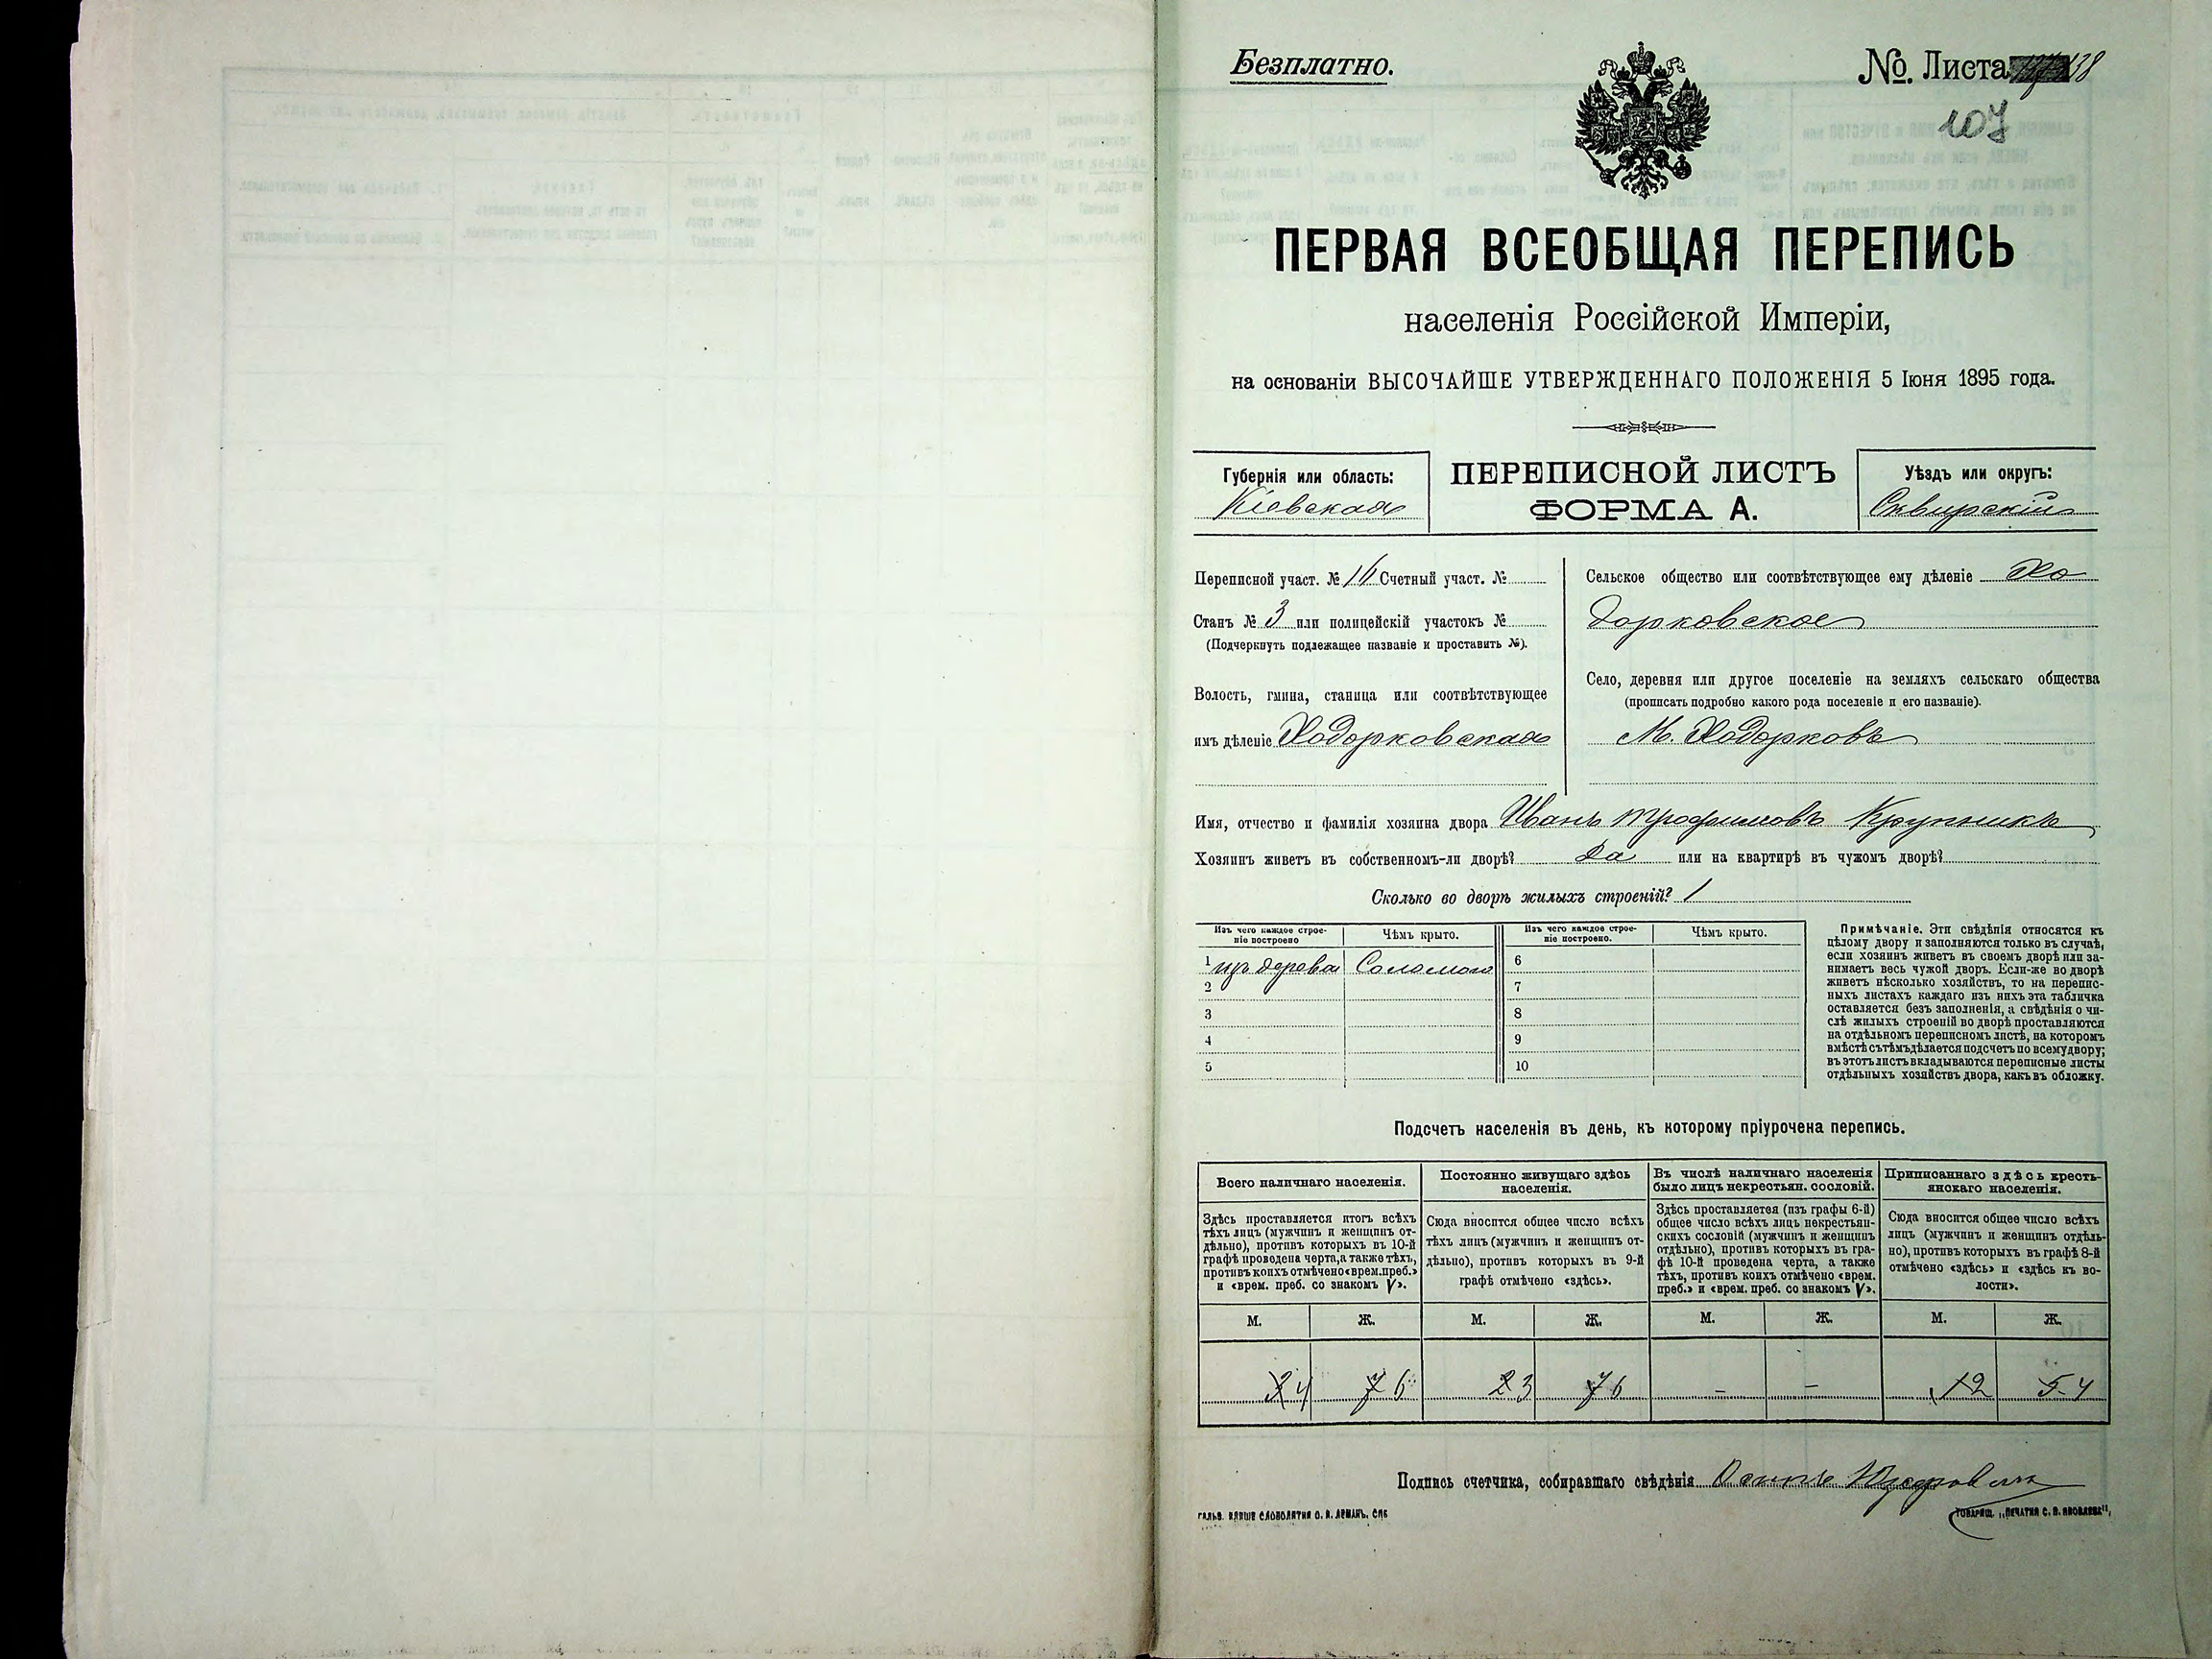 Безплатно.
№. Листа 138
107
ПЕРВАЯ ВСЕОБЩАЯ ПЕРЕПИСЬ
населенія Россійской Имперіи,
на основаніи ВЫСОЧАЙШЕ УТВЕРЖДЕННАГО ПОЛОЖЕНІЯ 5 Іюня 1895 года.
Губернія или область:
Кіевская
ПЕРЕПИСНОЙ ЛИСТЪ
ФОРМА А.
Уѣздъ или округъ:
Сквирскій
Переписной участ. № 16 Счетный участ. №
Станъ № 3 или полицейскій участокъ №
(Подчеркнуть подлежащее названіе и проставить №).
Волость, гмина, станица или соотвѣтствующее
имъ дѣленіе Ходорковская
Сельское общество или соотвѣтствующее ему дѣленіе Хо
дорковское
Село, деревня или другое поселеніе на земляхъ сельскаго общества
(прописать подробно какого рода поселеніе и его названіе).
М. Ходорковъ
Имя, отчество и фамилія хозяина двора Иванъ Трофимовъ Крупникъ
Хозяинъ живетъ въ собственномъ-ли дворѣ? Да или на квартирѣ въ чужомъ дворѣ?
Сколько во дворѣ жилыхъ строеній? 1
Изъ чего каждое строе-
ніе построено
Чѣмъ крыто.
Изъ чего каждое строе-
ніе построено.
Чѣмъ крыто.
1 изъ дерева Соломою 6
2 7
3 8
4 9
5 10
Примѣчаніе. Эти свѣдѣнія относятся къ
цѣлому двору и заполняются только въ случаѣ,
если хозяинъ живетъ въ своемъ дворѣ или за-
нимаетъ весь чужой дворъ. Если-же во дворѣ
живетъ нѣсколько хозяйствъ, то на перепис-
ныхъ листахъ каждаго изъ нихъ эта табличка
оставляется безъ заполненія, а свѣдѣнія о чи-
слѣ жилыхъ строеній во дворѣ проставляются
на отдѣльномъ переписномъ листѣ, на которомъ
вмѣстѣ съ тѣмъ дѣлается подсчетъ по всему двору;
въ этотъ листъ вкладываются переписные листы
отдѣльныхъ хозяйствъ двора, какъ въ обложку.
Подсчетъ населенія въ день, къ которому пріурочена перепись.
Всего наличнаго населенія.
Здѣсь проставляется итогъ всѣхъ
тѣхъ лицъ (мужчинъ и женщинъ от-
дѣльно), противъ которыхъ въ 10-й
графѣ проведена черта, а также тѣхъ,
противъ коихъ отмѣчено «врем. преб.»
и «врем. преб. со знакомъ V».
Постоянно живущаго здѣсь
населенія.
Сюда вносится общее число всѣхъ
тѣхъ лицъ (мужчинъ и женщинъ от-
дѣльно), противъ которыхъ въ 9-й
графѣ отмѣчено «здѣсь».
Въ числѣ наличнаго населенія
было лицъ некрестьян. сословій.
Здѣсь проставляется (изъ графы 6-й)
общее число всѣхъ лицъ некрестьян-
скихъ сословій (мужчинъ и женщинъ
отдѣльно), противъ которыхъ въ гра-
фѣ 10-й проведена черта, а также
тѣхъ, противъ коихъ отмѣчено «врем.
преб.» и «врем. преб. со знакомъ V».
Приписаннаго здѣсь кресть-
янскаго населенія.
Сюда вносится общее число всѣхъ
лицъ (мужчинъ и женщинъ отдѣль-
но), противъ которыхъ въ графѣ 8-й
отмѣчено «здѣсь» и «здѣсь къ во-
лости».
М. Ж. М. Ж. М. Ж. М. Ж.
3 4 7 6 2 3 7 6 – – 1 2 5 4
Подпись счетчика, собиравшаго свѣдѣнія Осипъ
ГАЛЬВ. КЛИШЕ СЛОВОЛИТНИ О. И. ЛЕМАНЪ, СПБ
ТОВАРИЩ. „ПЕЧАТНЯ С. П. ЯКОВЛЕВА",